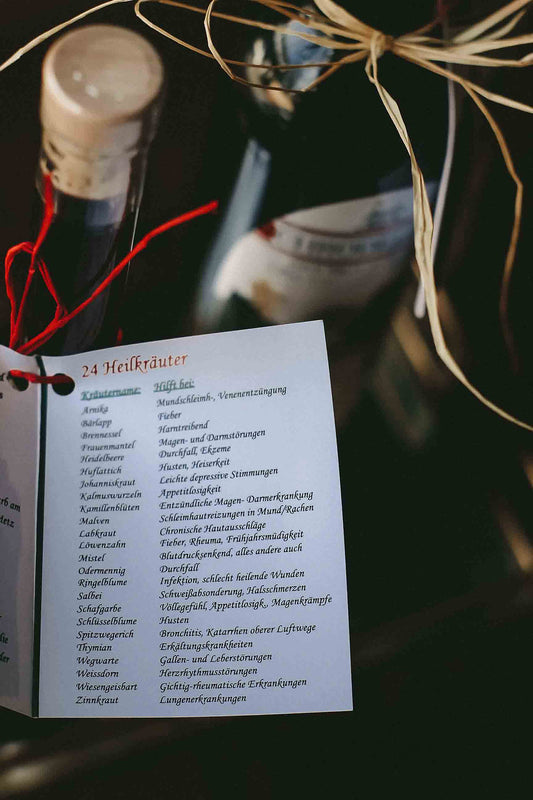 24 Heilkräuter
Kräutername: Hilft bei:
Arnika Mundschleimh-, Venenentzüngung
Bärlapp Fieber
Brennessel Harntreibend
Frauenmantel Magen- und Darmstörungen
Heidelbeere Durchfall, Ekzeme
Huflattich Husten, Heiserkeit
Johanniskraut Leichte depressive Stimmungen
Kalmuswurzeln Appetitlosigkeit
Kamillenblüten Entzündliche Magen- Darmerkrankung
Malven Schleimhautreizungen in Mund/Rachen
Labkraut Chronische Hautausschläge
Löwenzahn Fieber, Rheuma, Frühjahrsmüdigkeit
Mistel Blutdrucksenkend, alles andere auch
Odermennig Durchfall
Ringelblume Infektion, schlecht heilende Wunden
Salbei Schweißabsonderung, Halsschmerzen
Schafgarbe Völlegefühl, Appetitlosigk., Magenkrämpfe
Schlüsselblume Husten
Spitzwegerich Bronchitis, Katarrhen oberer Luftwege
Thymian Erkältungskrankheiten
Wegwarte Gallen- und Leberstörungen
Weissdorn Herzrhythmusstörungen
Wiesengeisbart Gichtig-rheumatische Erkrankungen
Zinnkraut Lungenerkrankungen